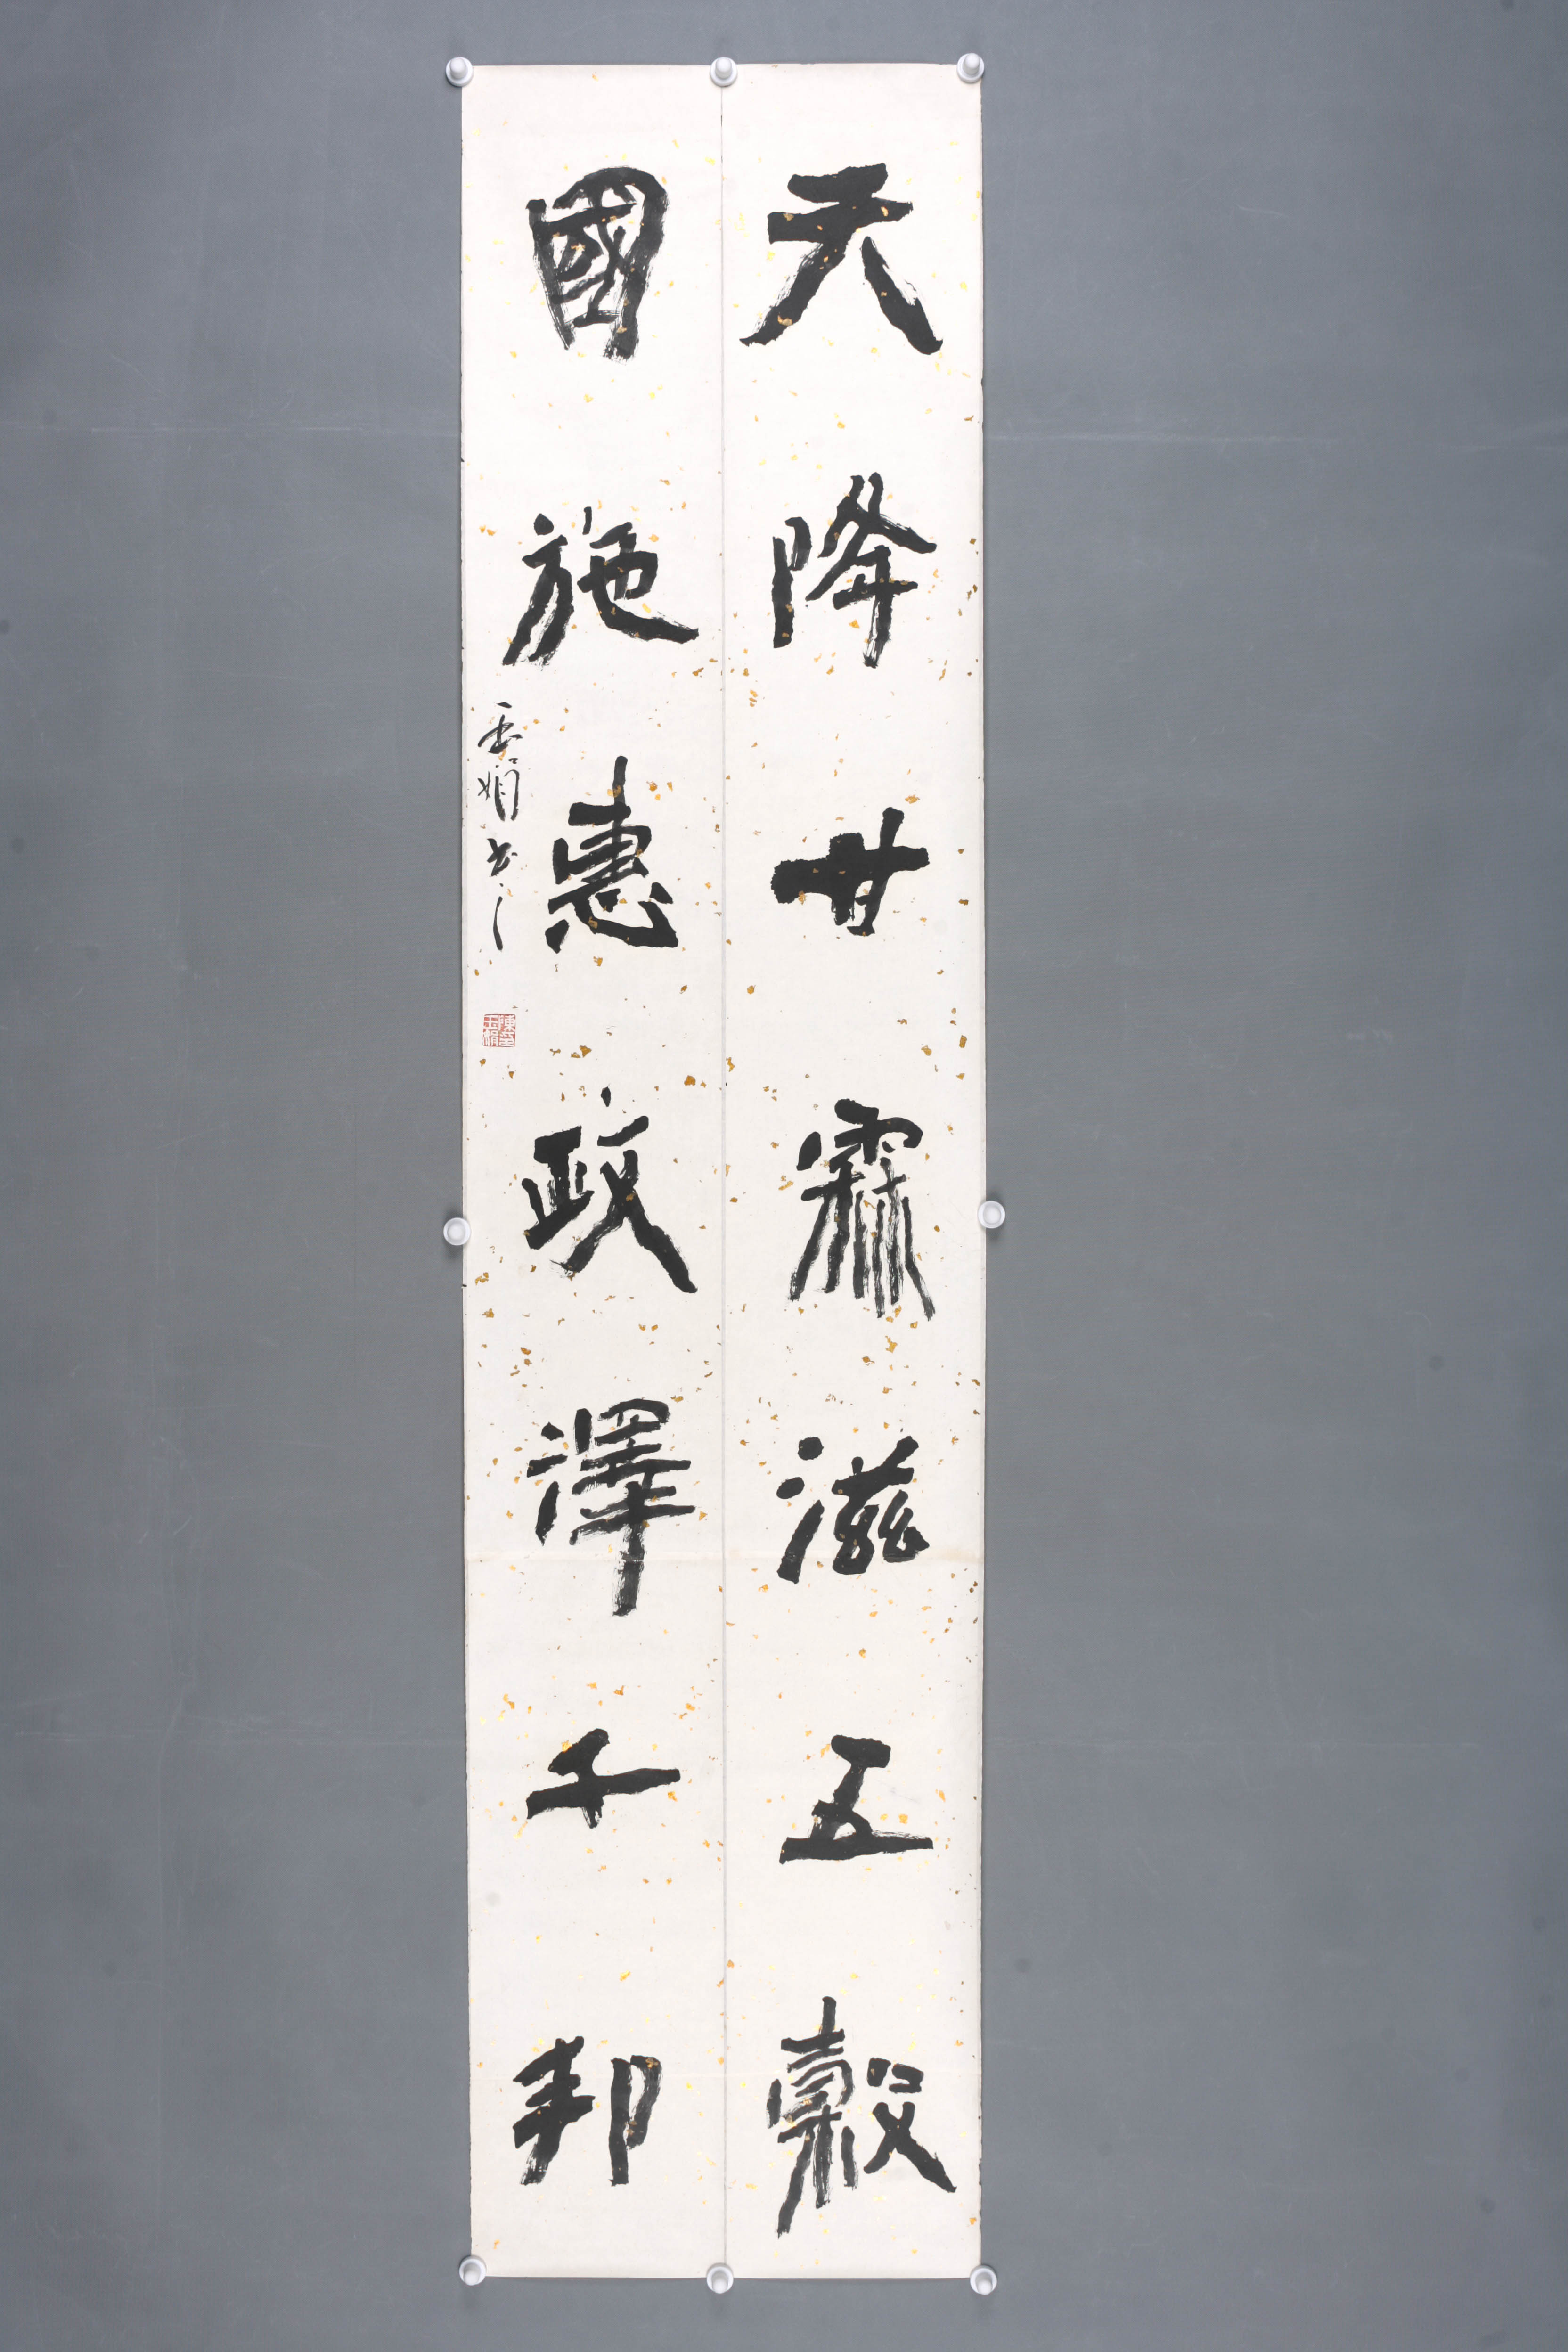 天降甘霖滋五穀
國施惠政澤千邦
玉娟書
陳玉娟印